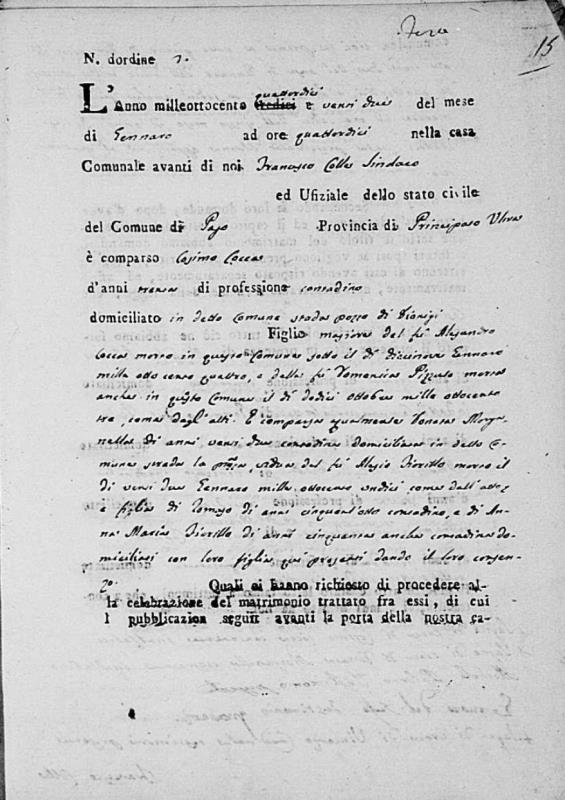 15
N. dordine 7.
L'Anno milleottocento quattordici tredici e venti due del mese
di Gennaro ad ore quattordici nella casa
Comunale avanti di noi Francesco Sindaco
ed Ufiziale dello stato civile
del Comune di Pago Provincia di Principato Ultra
è comparso Cosimo Coccas
d'anni trenta di professione contadino
domiciliato in detto Comune strada pozzo di
Figlio maggiore del fu Alesandro
Coccas morto in questo Comune sotto il dì diecinove Gennaro
mille otto cento quattro, e della fu Domenica Pizzuto morta
anche in questo Comune il dì dodici ottobre mille ottocento
tre, come dagl'atti. E comparsa egualmente Donata Morga-
nella di anni venti due contadina domiciliata in detto Co-
mune strada la vedova del fu Alesio Fiorillo morto il
dì venti due Gennaro mille ottocento undici come dall'atto,
e figlia di Tomaso di anni cinquant'otto contadino, e di An-
na Maria Fiorillo di anni cinquanta anche contadina do-
miciliati con loro figlia qui presenti dando il loro consen-
zo. Quali ci hanno richiesto di procedere al-
la celebrazione del matrimonio trattato fra essi, di cui
l pubblicazion seguit avanti la porta della nostra ca-